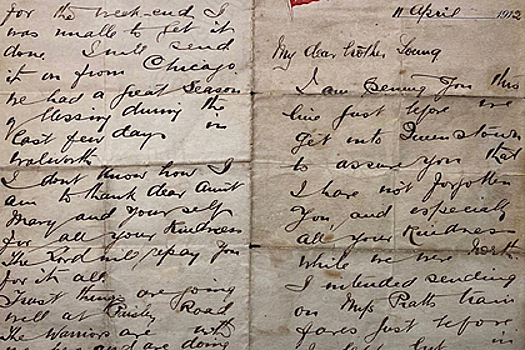 for the week-end I
was unable to get it
done. I will send
it on from Chicago.
We had a great Season
of Blessing during the
last few days in
Walworth
I dont know how I
am to thank dear Aunt
Mary and yourself
for all your Kindness
The Lord will repay you
for it all.
Trust things are going
well at Paisley Road
The Warriors are with
and are doing
11 April 1912
My dear brother Young
I am penning you this
line just before we
get into Queenstown
to assure you that
I have not forgotten
you, and especially
all your Kindness
while we were North.
I intended sending
on Miss Pratts train
fares just before
I left but in